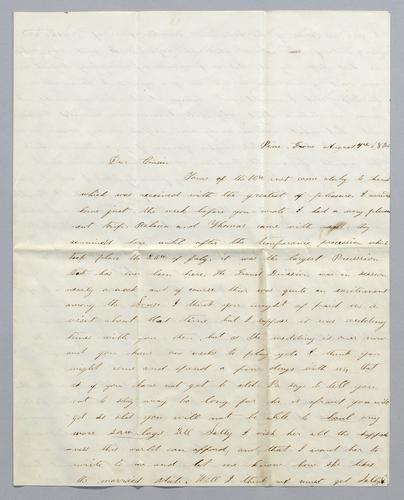 Pine Grove August 9th
Dear Cousin
Yours of the inst came duly to hand
which was received with the greatest of pleasure. I arrived
home just the week before you wrote I had a very pleas
ant trip. and Thomas came with they
remained here until after the temperance procession which
took place the of July, it was the largest Procession
that has ever been here. the Grand Division was in session
nearly a week and of course there was quite an excitement
among the I think you might of paid us a
visit about that time but I suppose it was wedding
times with you then but as the wedding is over now
and you have no weeks to play yet I think you
might come and spend a few days with us, that
is if you have not got to old Pa says to tell you
not to stay way too long for he is afraid you will
get so old you will not be able to haul any
more saw logs Tell Sally I wish her all the happi
ness this world can afford, and that I want her to
write to me and let me know how she likes
the married state. Well I think we must get